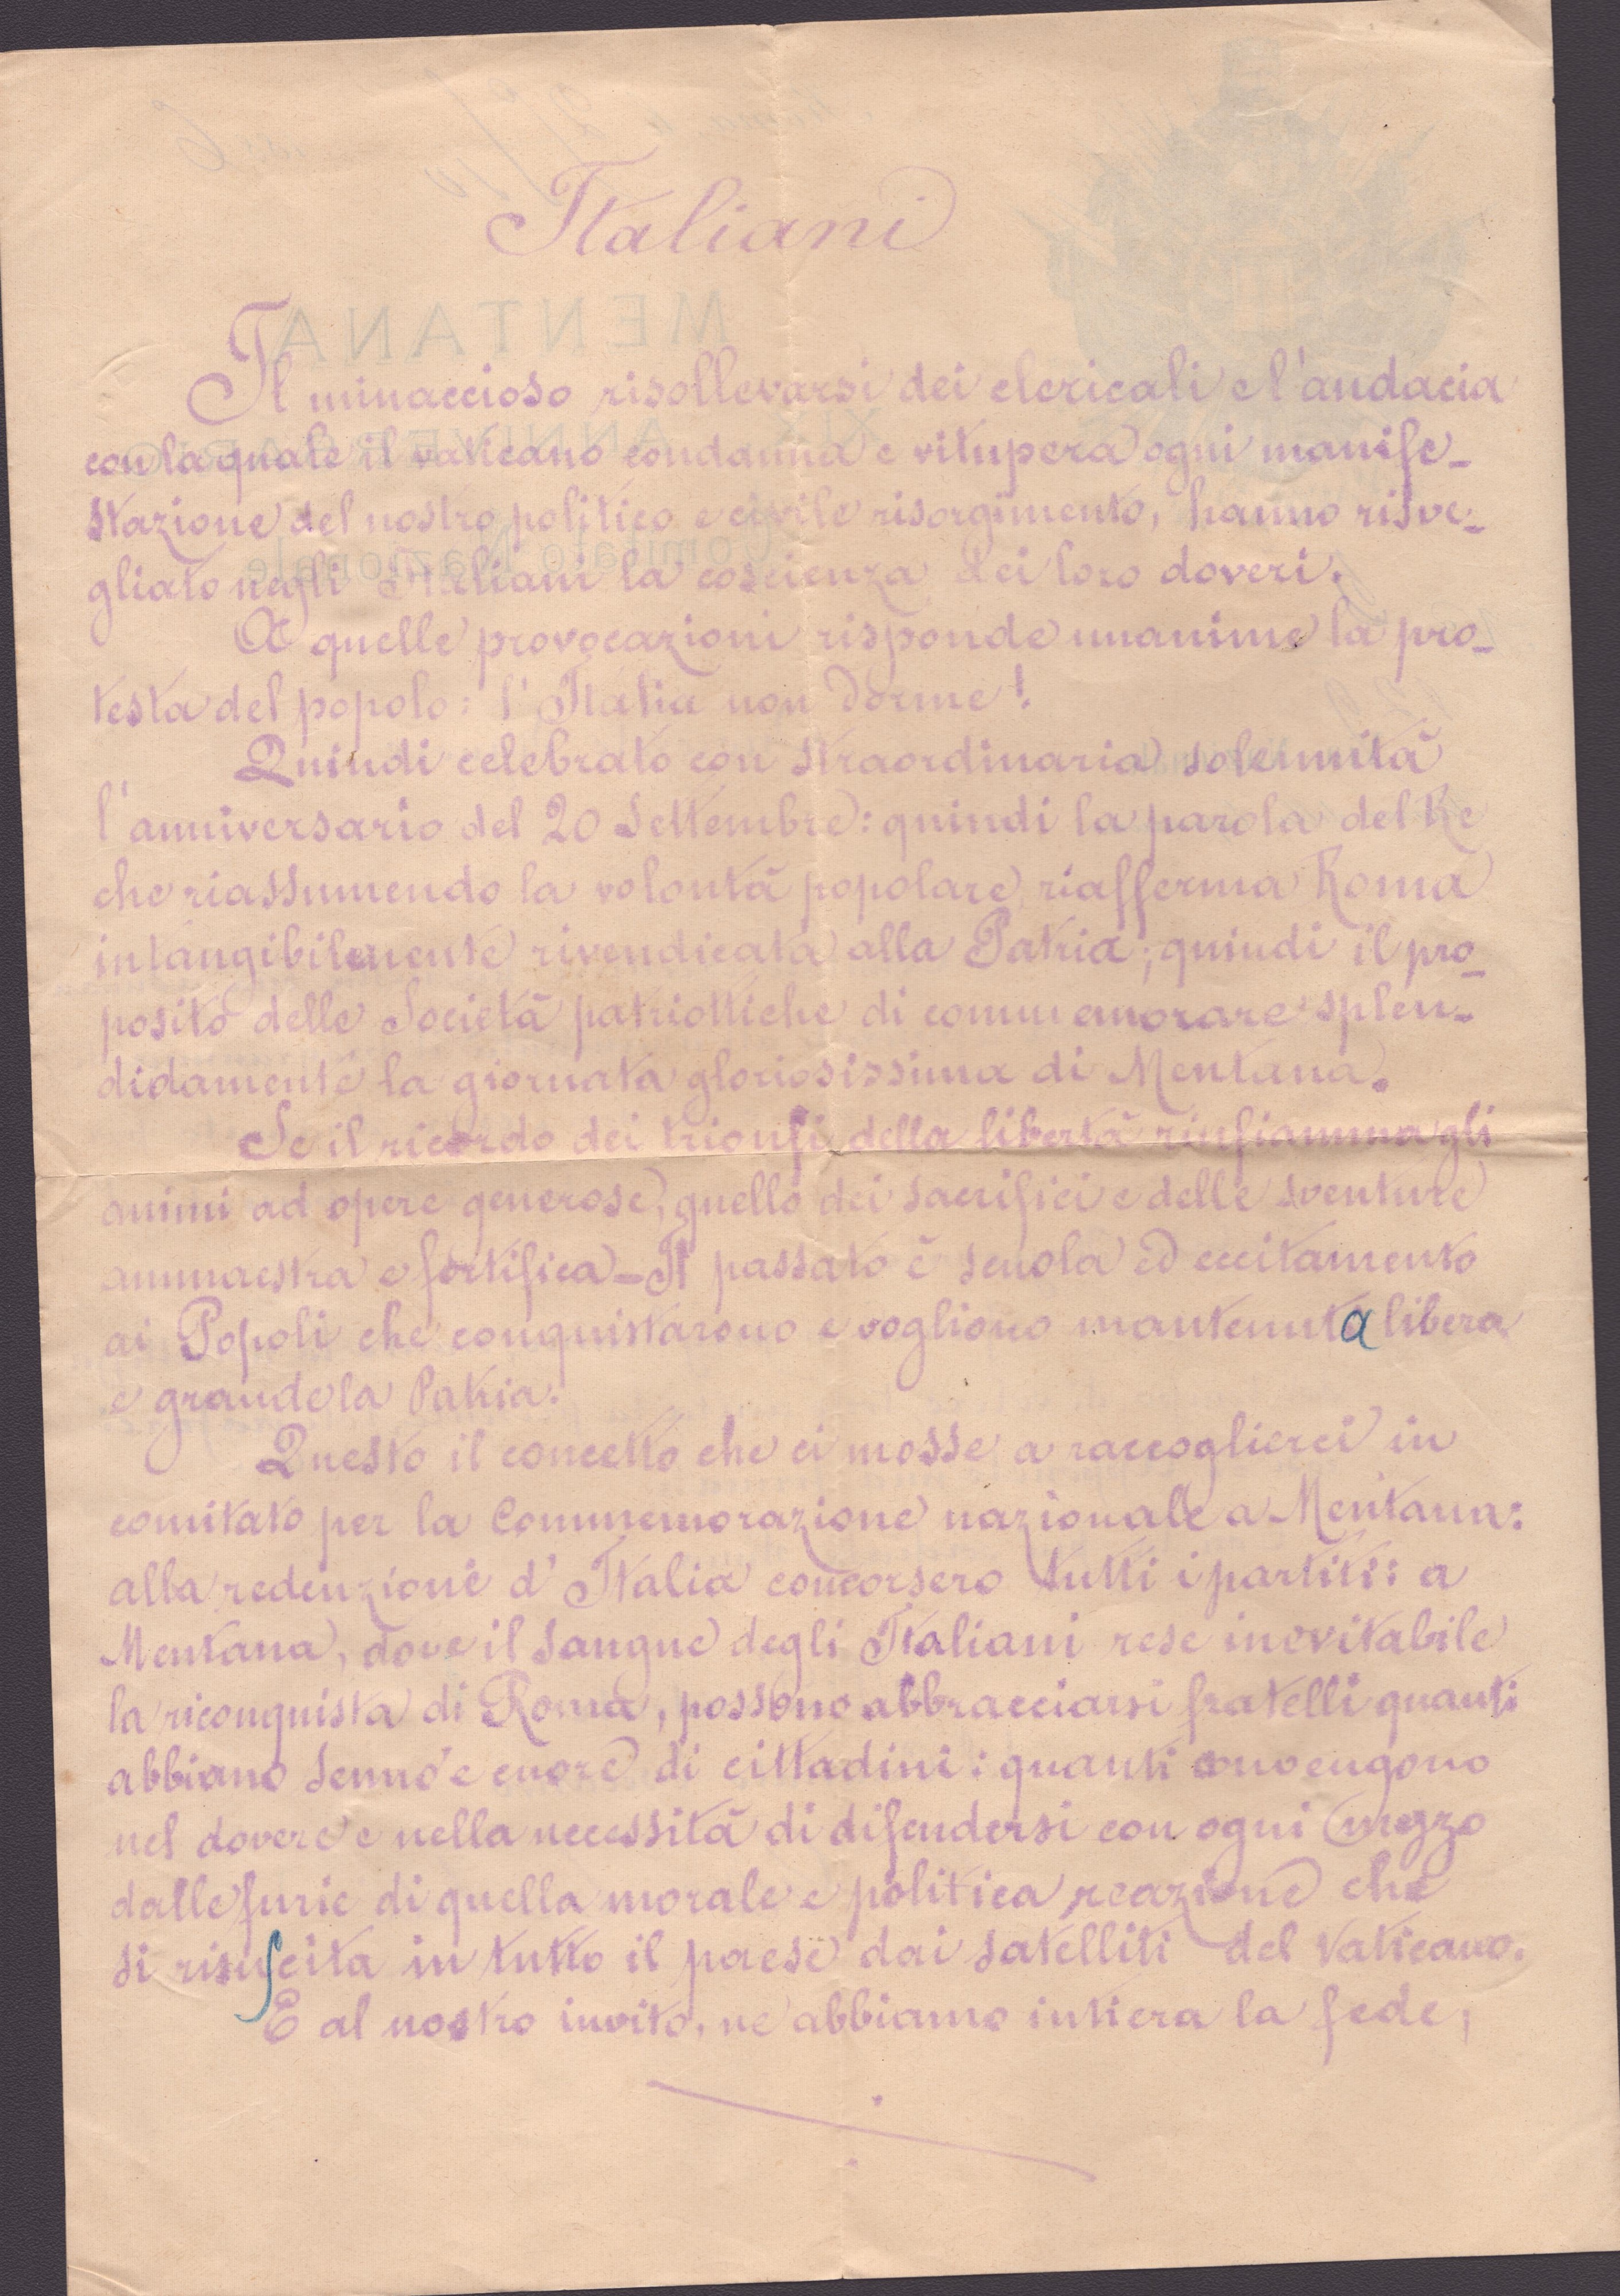 Italiani
Il minaccioso risollevarsi dei clericali e l'audacia
con la quale il vaticano condanna e vitupera ogni manife-
stazione del nostro politico e civile risorgimento, hanno risve-
gliato negli Italiani la coscienza dei loro doveri.
A quelle provocazioni risponde unanime la pro-
testa del popolo: l'Italia non dorme!
Quindi celebrato con straordinaria solennità
l'anniversario del 20 Settembre: quindi la parola del Re
che riassumendo la volontà popolare, riafferma Roma
intangibilmente rivendicata alla Patria; quindi il pro-
posito delle Società patriottiche di commemorare splen-
didamente la giornata gloriosissima di Mentana.
Se il ricordo dei trionfi della libertà rinfiamma gli
animi ad opere generose, quello dei sacrifici e delle sventure
ammaestra e fortifica - Il passato è scuola ed eccitamento
ai Popoli che conquistarono e vogliono mantenuta libera
e grande la Patria.
Questo il concetto che ci mosse a raccoglierci in
comitato per la Commemorazione nazionale a Mentana:
alla redenzione d'Italia concorsero tutti i partiti: a
Mentana, dove il sangue degli Italiani rese inevitabile
la riconquista di Roma, possono abbracciarsi fratelli quanti
abbiano senno e cuore di cittadini: quanti convengono
nel dovere e nella necessità di difendersi con ogni mezzo
dalle furie di quella morale e politica reazione che
si risuscita in tutto il paese dai satelliti del Vaticano.
E al nostro invito, ne abbiamo intiera la fede,
MENTANA
XIX ANNIVERSARIO
Comitato Nazionale